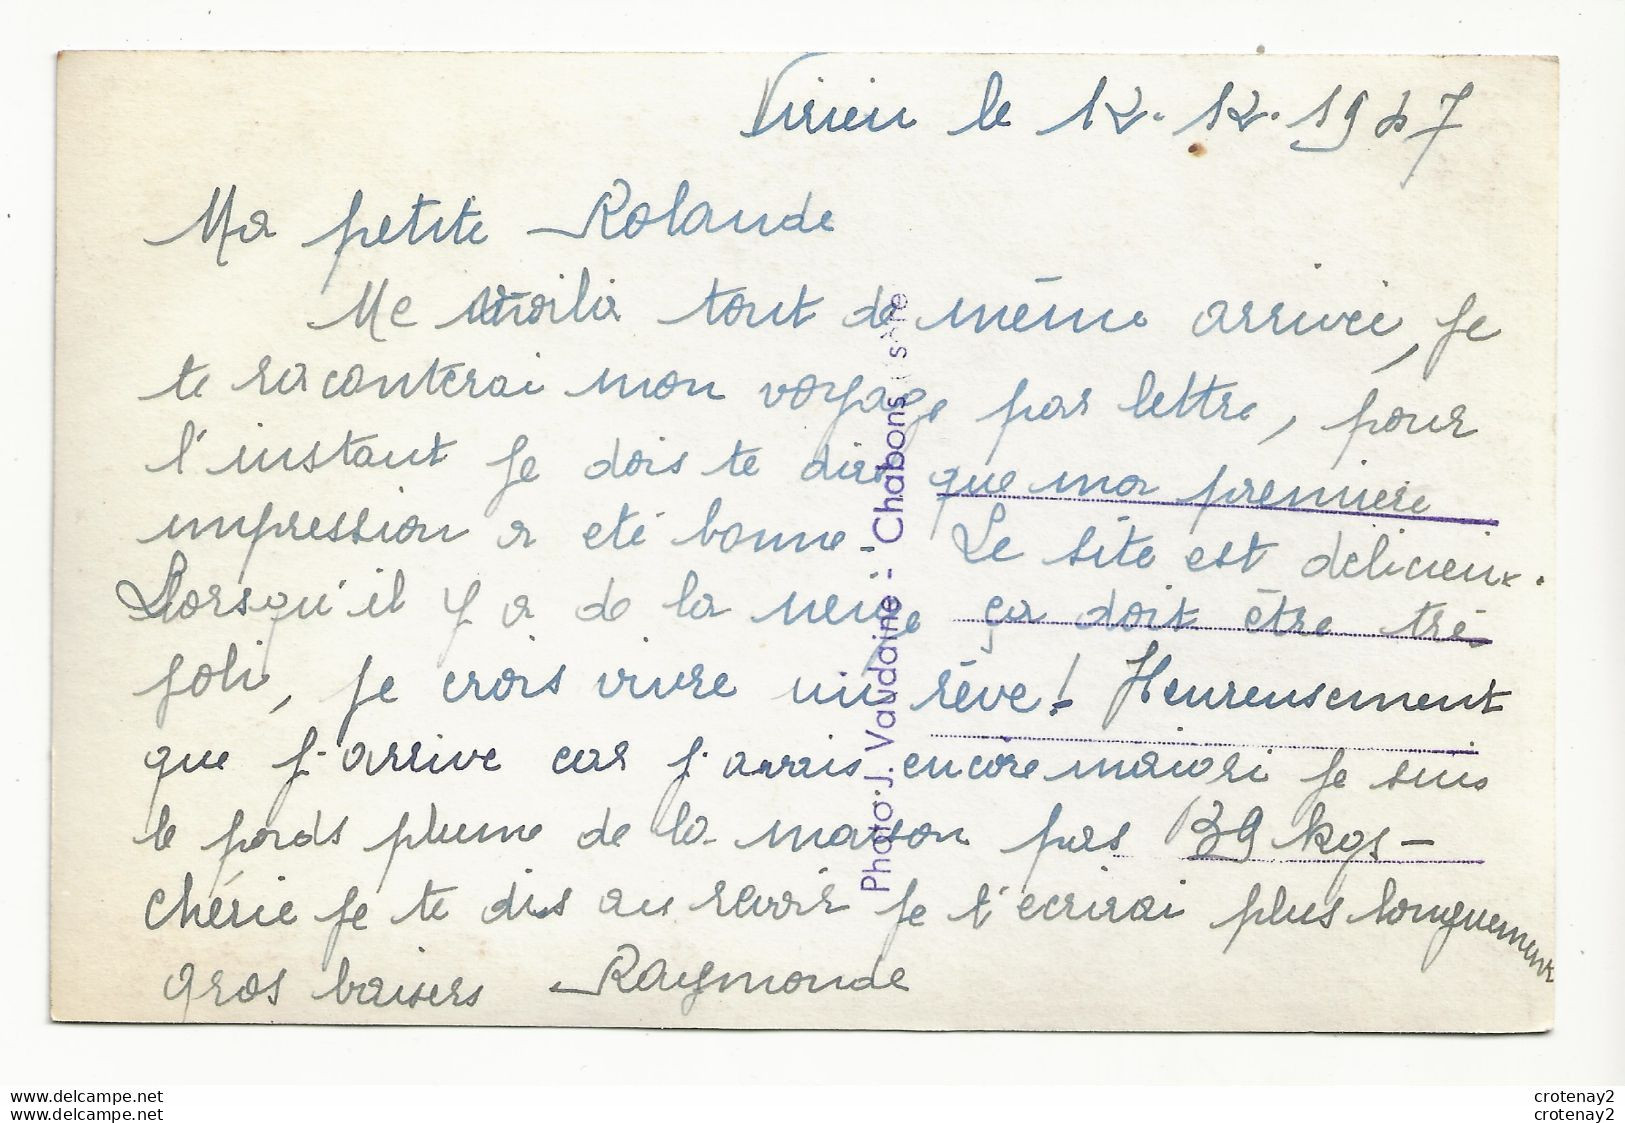 Virieu le 12.12.1947
Ma petite Rolande
Me voilà tout de même arrivée, je
te raconterai mon voyage par lettre, pour
l'instant je dois te dire que ma première
impression a été bonne - Le site est délicieux.
Lorsqu'il y a de la neige ça doit être trè
joli, je crois vivre un rêve! Heureusement
que j'arrive car j'avais encore maigri je suis
le poids plume de la maison pas 39 kgs -
chérie je te dis au revoir je t'écrirai plus longuement
gros baisers Raymonde
Photo J. Vaudaine - Chabons
www.delcampe.net
www.delcampe.net
crotenay2
crotenay2